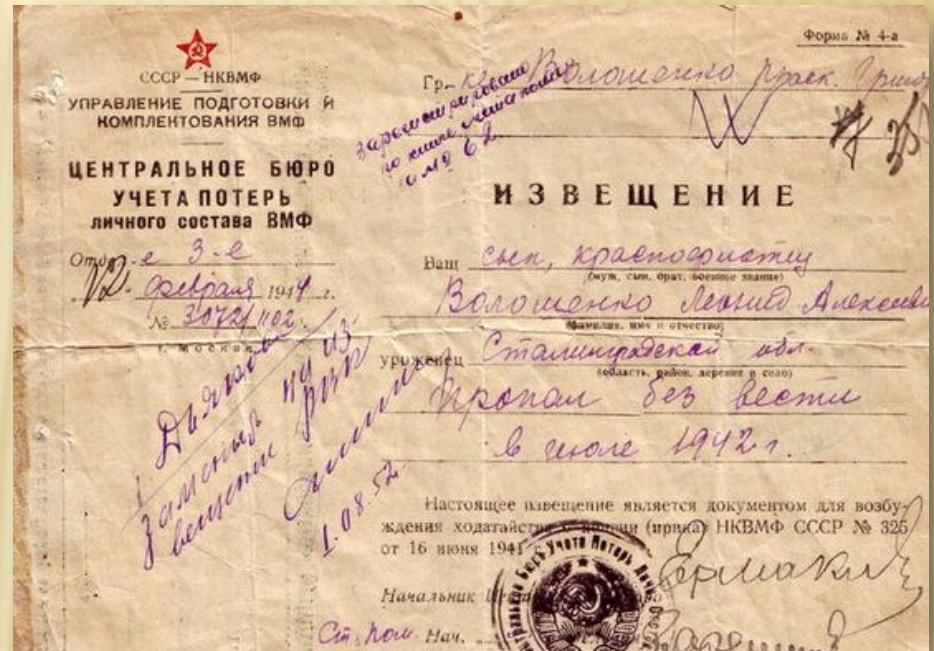 Форма № 4-а
СССР — НКВМФ
УПРАВЛЕНИЕ ПОДГОТОВКИ И
КОМПЛЕКТОВАНИЯ ВМФ
ЦЕНТРАЛЬНОЕ БЮРО
УЧЕТА ПОТЕРЬ
личного состава ВМФ
3-е
февраля 1944 г.
№ 3072
г. Москва
Гр-ке Волошенко
зарегистрировано
по книге
ИЗВЕЩЕНИЕ
Ваш сын, краснофлотец
(муж, сын, брат, военное звание)
Волошенко Леонид Алексееви
(фамилия, имя и отчество)
уроженец Сталинградской обл.
(область, район, деревня и село)
пропал без вести
в июле 1942 г.
Настоящее извещение является документом для возбу-
ждения ходатайства о пенсии (приказ НКВМФ СССР № 325
от 16 июня 1941 г.
Начальник
Ст. пом. Нач.
Заменил на из
вещение РВК
1.08.52
Бюро Учета Потерь